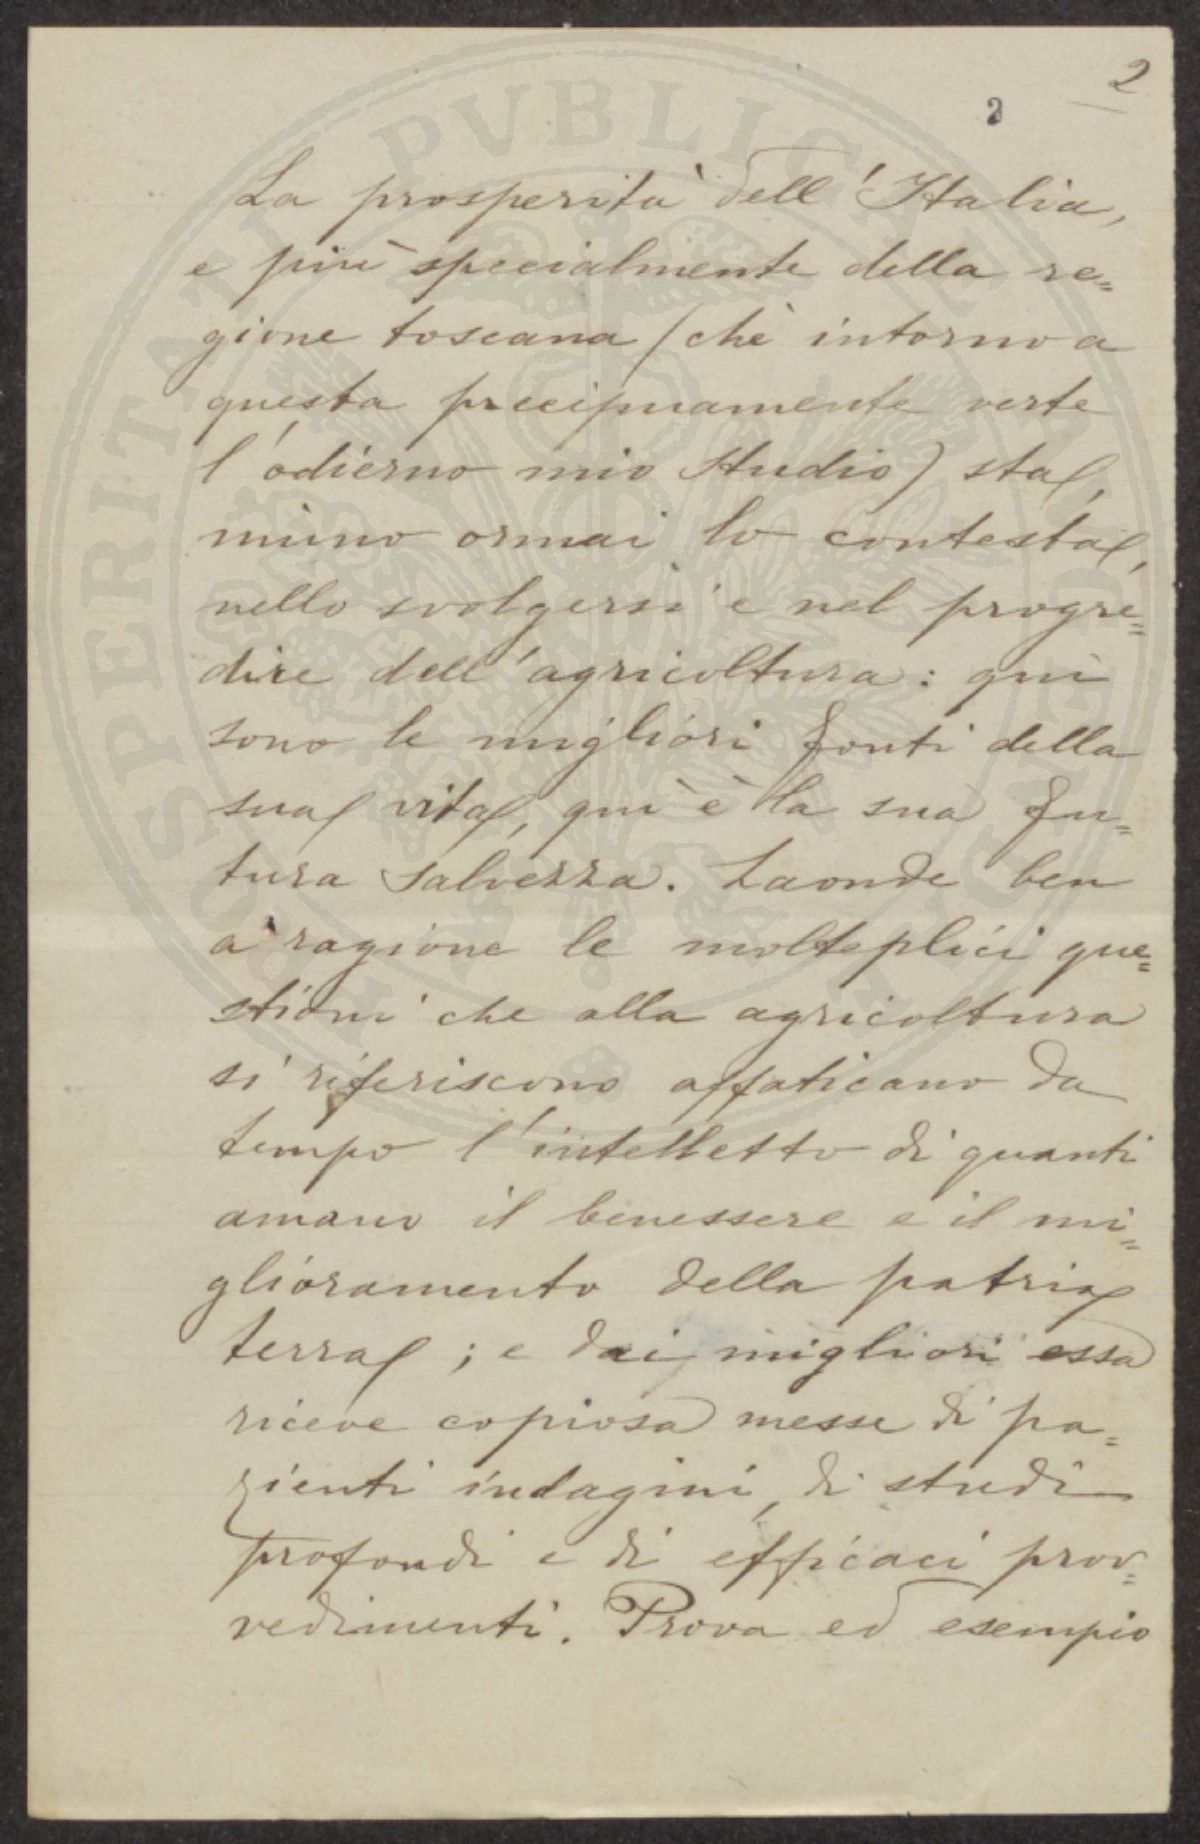 2
2
La prosperità dell'Italia,
e più specialmente della re=
gione toscana (chè intorno a
questa precipuamente verte
l'odierno mio studio) sta,
niuno ormai lo contesta,
nello svolgersi e nel progre=
dire dell'agricoltura: qui
sono le migliori fonti della
sua vita, qui è la sua fu=
tura salvezza. Laonde ben
a ragione le molteplici que=
stioni che alla agricoltura
si riferiscono affaticano da
tempo l'intelletto di quanti
amano il benessere e il mi=
glioramento della patria
terra; e dai migliori essa
riceve copiosa messe di pa=
zienti indagini, di studi
profondi e di efficaci prov=
vedimenti. Prova ed esempio
PROSPERITATI PVBLICAE